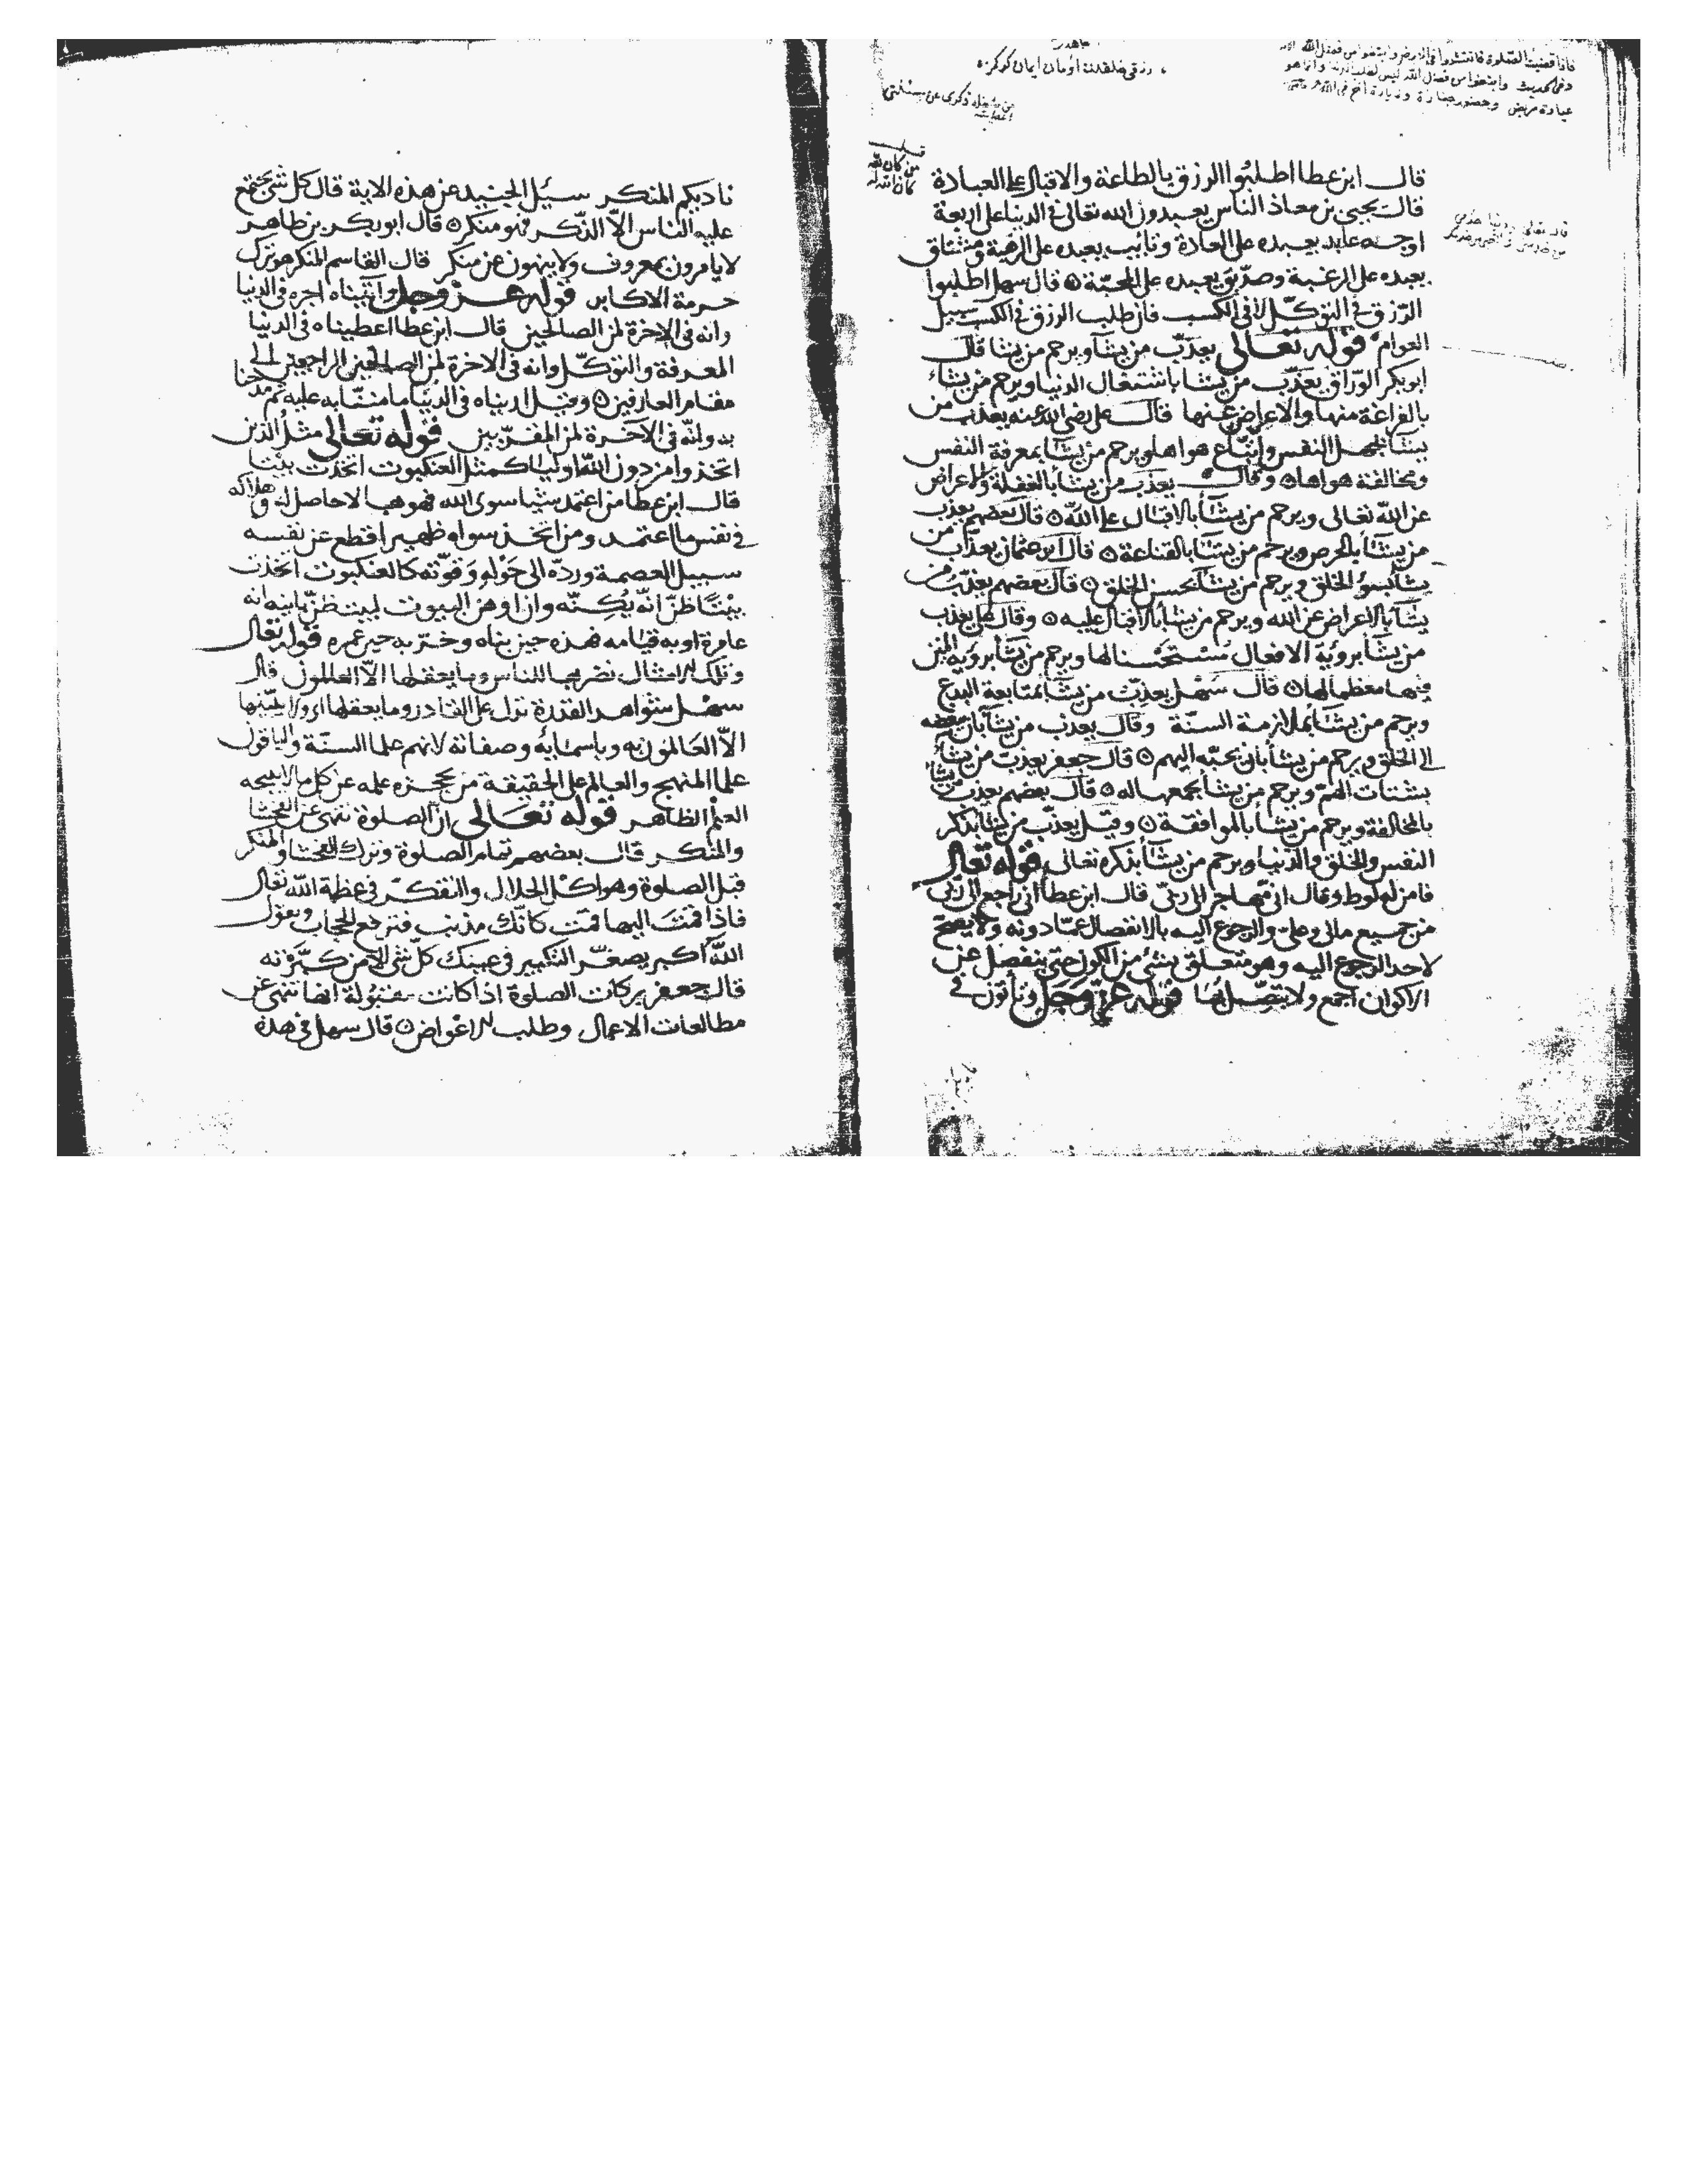 فاذا قضيت الصلوة فانتشروا في الارض وابتغوا من فضل الله
وفي الحديث وابتغوا من فضل الله ليس لطلب دنيا وانما هو
عيادة مريض وحضور جنازة وزيارة اخ في الله
من شغله ذكرى عن مسئلتى
اعطيته
من كان لله
كان الله له
قال ابن عطا اطلبوا الرزق بالطاعة والاقبال على العبادة
قال يحيى بن معاذ الناس يعبدون الله تعالى فى الدنيا على اربعة
اوجه عابد يعبده على العادة وتائب يعبده على الرهبة ومشتاق
يعبده على الرغبة وصدّيق يعبده على المحبّة ۞ قال سهل اطلبوا
الرّزق فى التوكّل لا فى الكسب فان طلب الرزق فى الكسب سبيل
العوام قوله تعالى يعذّب من يشا ويرحم من يشا قال
ابو بكر الورّاق يعذّب من يشا باشتغال الدنيا ويرحم من يشاء
بالفراغة منها والاعراض عنها قال على رضى الله عنه يعذب من
يشا بجهل النفس واتّباع هواها ويرحم من يشا بمعرفة النفس
ومخالفة هواها ۞ وقال يعذب من يشا بالغفلة والاعراض
عن الله تعالى ويرحم من يشأ بالاقبال على الله ۞ قال بعضهم يعذب
من يشأ بالحرص ويرحم من يشأ بالقناعة ۞ قال ابو عثمان يعذّب من
يشأ بسوء الخلق ويرحم من يشأ بحسن الخلق ۞ قال بعضهم يعذّب من
يشأ بالاعراض عن الله ويرحم من يشأ بالاقبال عليه ۞ وقال سهل يعذب
من يشأ برؤية الافعال مستحسنا لها ويرحم من يشأ برؤية المنن
فيها معظما لها ۞ قال سهل يعذّب من يشأ بمتابعة البدع
ويرحم من يشأ بملازمة السنّة وقال يعذب من يشأ بان يبغضه
الى الخلق ويرحم من يشأ بان يحبّبه اليهم ۞ قال جعفر يعذب من يشأ
بشتات الهمّ ويرحم من يشأ بجمعها له ۞ قال بعضهم يعذب من يشأ
بالمخالفة ويرحم من يشا بالموافقة ۞ وقيل يعذّب من يشا بذكر
النفس والخلق والدنيا ويرحم من يشأ بذكره تعالى قوله تعالى
فامن له لوط وقال انى مهاجر الى ربى قال ابن عطا انى راجع الى ربى
من جميع مالى وعلىّ والرجوع اليه بالانفصال عمّا دونه ولا يصحّ
لاحد الرجوع اليه وهو متعلق بشئ من الكون حتى ينفصل عن
الاكوان اجمع ولا يتصّل بها قوله عزّ وجلّ وتأتون فى
ناديكم المنكر سئل الجنيد عن هذه الاية قال كل شئ يجتمع
عليه الناس الاّ الذّكر فهو منكر ۞ قال ابو بكر بن طاهر
لا يامرون بمعروف ولا ينهون عن منكر قال القاسم المنكر هو ترك
حرمة الاكابر قوله عز وجل وآتيناه اجره فى الدنيا
وانه فى الاخرة لمن الصالحين قال ابن عطا اعطيناه فى الدنيا
المعرفة والتوكّل وانه فى الاخرة لمن الصالحين الراجعين الى
مقام العارفين ۞ وقيل
به وانّه فى الآخرة لمن المقرّبين قوله تعالى مثل الذين
اتخذوا من دون الله اوليا كمثل العنكبوت اتخذت بيتا
قال ابن عطا من اعتمد شيئا سوى الله فهو هبا لا حاصل له وهلاكه
فى نفس ما اعتمد ومن اتخذ سواه ظهيرا قطع عن نفسه
سبيل العصمة وردّه الى حوله وقوّته كالعنكبوت اتخذت
بيتًا ظنّ انّه يُكِنّه وان اوهن البيوت لبيت ظنّ بانيه انه
عامره او به قيامه فهذه حين بناه وخرّبه حين عمره قوله تعالى
وتلك الامثال نضربها للناس وما يعقلها الاّ العالمون قال
سهل شواهد القدرة تدل على القادر وما يعقلها
الاّ العالمون به وباسمايه وصفاته لانهم علما السنّة والباقون
علما المنهج والعالم على الحقيقة من يحجزه علمه عن كل ما لا يبيحه
العلم الظاهر قوله تعالى ان الصلوة تنهى عن الفحشا
والمنكر قال بعضهم تمام الصلوة وترك الفحشا والمنكر
قبل الصلوة وهو اكل الحلال والتفكّر فى عظمة الله تعالى
فاذا قمت اليها قمت كانّك مذنب فترفع الحجاب وبقول
الله اكبر يصغّر التكبير فى عينك كلّ شئ الا من كبّرته
قال جعفر بركات الصلوة اذا كانت مقبولة انها تنهى عن
مطالعات الاعمال وطلب الاعواض ۞ قال سهل فى هذه